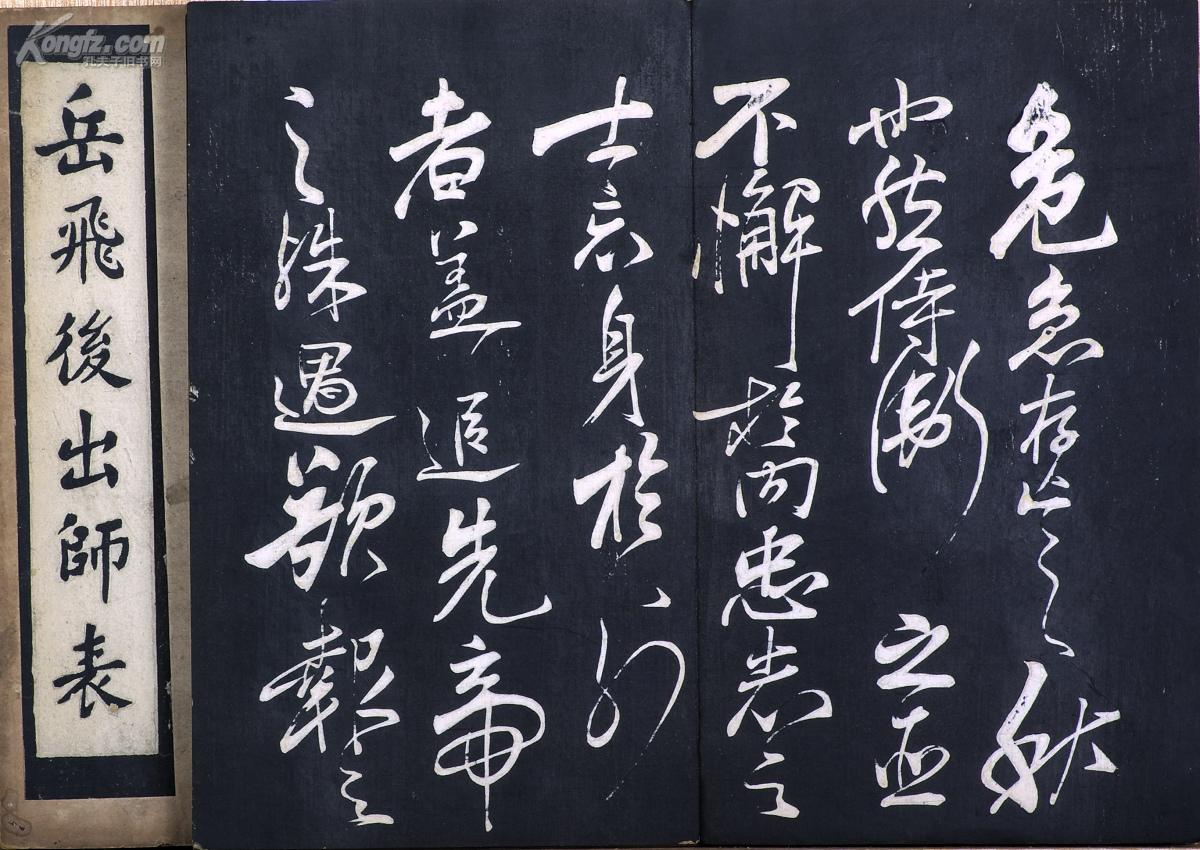 Kongfz.com
孔夫子旧书网
岳飛後出師表
危急存亡之秋
也然侍衛之臣
不懈於内忠志之
士忘身於外
者盖追先帝
之殊遇欲報之